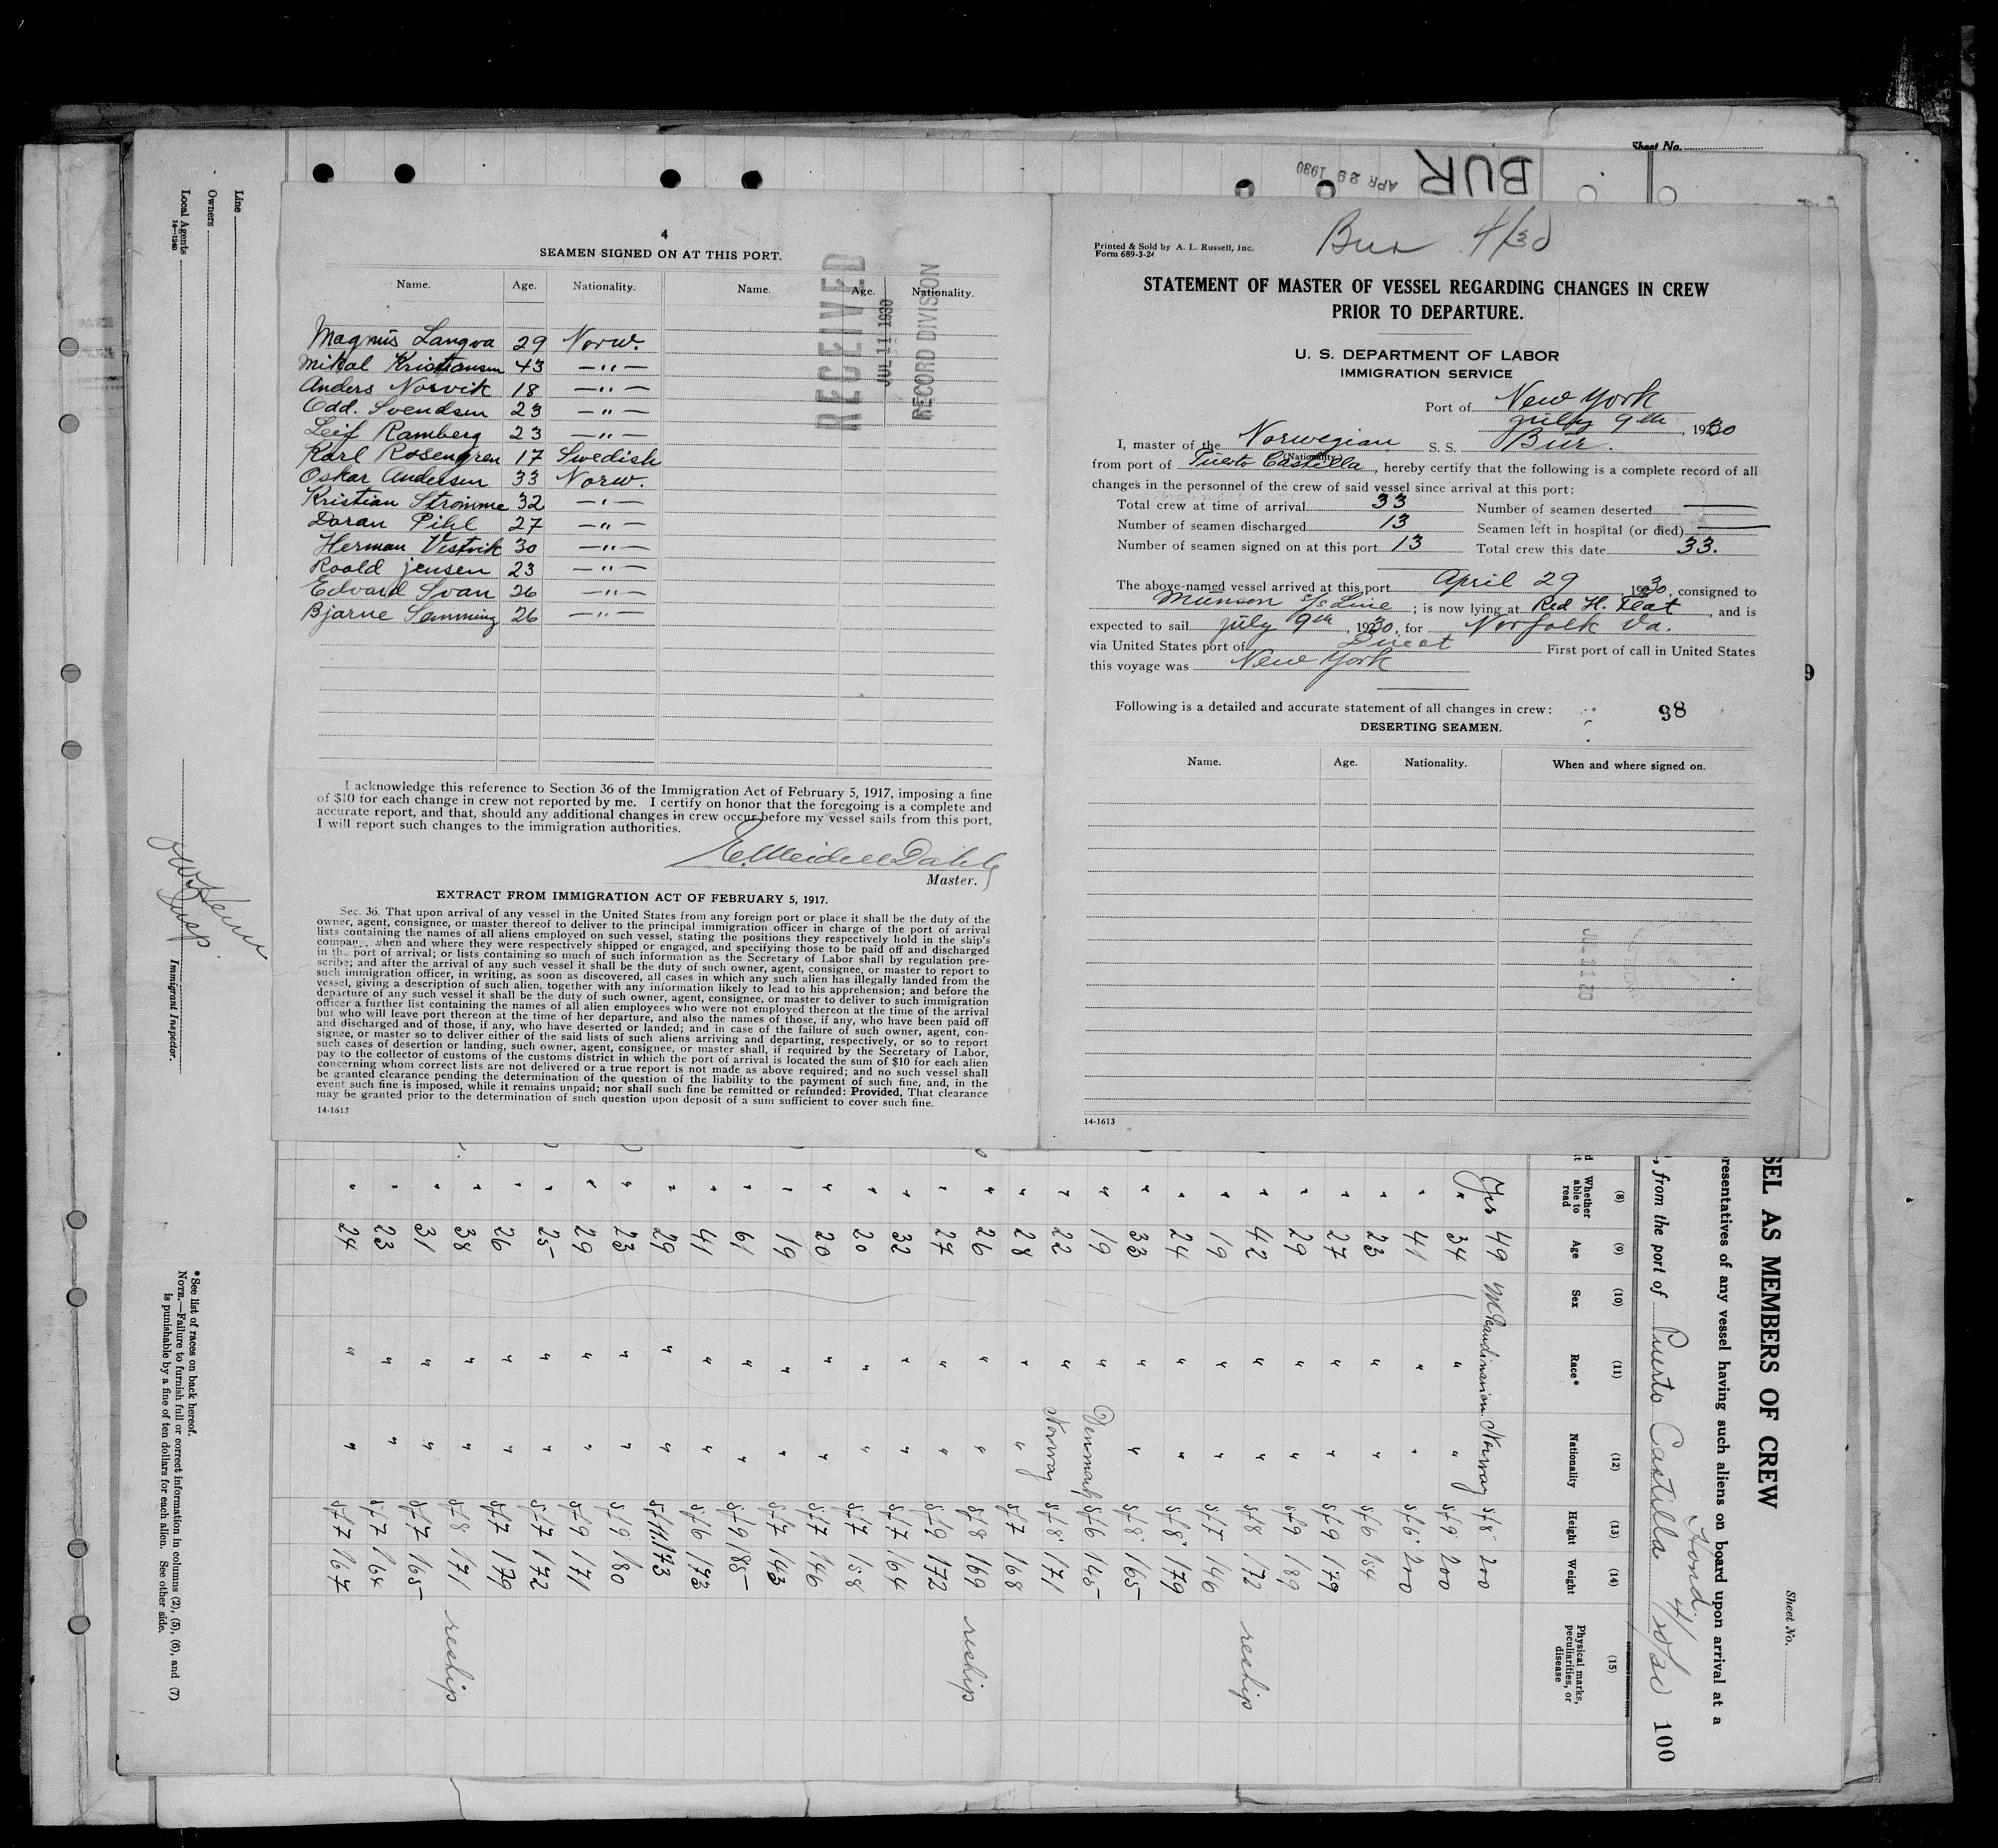 Sheet No.
BUR
APR 29 1930
4
SEAMEN SIGNED ON AT THIS PORT.
Name. Age. Nationality. Name. Age. Nationality.
RECEIVED
JUL 11 1930
RECORD DIVISION
Magnus Langva 29 Norw.
Mikal Kristiansen 43 —"—
Anders Norvik 18 —"—
Odd. Svendsen 23 —"—
Leif Ramberg 23 —"—
Karl Rosengren 17 Swedish
Oskar Andersen 33 Norw.
Kristian Stromme 32 —"—
Doran Pihl 27 —"—
Herman Vestvik 30 —"—
Roald jensen 23 —"—
Edvard Svan 26 —"—
Bjarne Samming 26 —"—
I acknowledge this reference to Section 36 of the Immigration Act of February 5, 1917, imposing a fine
of $10 for each change in crew not reported by me. I certify on honor that the foregoing is a complete and
accurate report, and that, should any additional changes in crew occur before my vessel sails from this port,
I will report such changes to the immigration authorities.
E. Meidell Dahl
Master.
EXTRACT FROM IMMIGRATION ACT OF FEBRUARY 5, 1917.
Sec. 36. That upon arrival of any vessel in the United States from any foreign port or place it shall be the duty of the
owner, agent, consignee, or master thereof to deliver to the principal immigration officer in charge of the port of arrival
lists containing the names of all aliens employed on such vessel, stating the positions they respectively hold in the ship's
company, when and where they were respectively shipped or engaged, and specifying those to be paid off and discharged
in the port of arrival; or lists containing so much of such information as the Secretary of Labor shall by regulation pre-
scribe; and after the arrival of any such vessel it shall be the duty of such owner, agent, consignee, or master to report to
such immigration officer, in writing, as soon as discovered, all cases in which any such alien has illegally landed from the
vessel, giving a description of such alien, together with any information likely to lead to his apprehension; and before the
departure of any such vessel it shall be the duty of such owner, agent, consignee, or master to deliver to such immigration
officer a further list containing the names of all alien employees who were not employed thereon at the time of the arrival
but who will leave port thereon at the time of her departure, and also the names of those, if any, who have been paid off
and discharged and of those, if any, who have deserted or landed; and in case of the failure of such owner, agent, con-
signee, or master so to deliver either of the said lists of such aliens arriving and departing, respectively, or so to report
such cases of desertion or landing, such owner, agent, consignee, or master shall, if required by the Secretary of Labor,
pay to the collector of customs of the customs district in which the port of arrival is located the sum of $10 for each alien
concerning whom correct lists are not delivered or a true report is not made as above required; and no such vessel shall
be granted clearance pending the determination of the question of the liability to the payment of such fine, and, in the
event such fine is imposed, while it remains unpaid; nor shall such fine be remitted or refunded: Provided, That clearance
may be granted prior to the determination of such question upon deposit of a sum sufficient to cover such fine.
14-1613
Bur 4/30
Printed & Sold by A. L. Russell, Inc.
Form 689-3-24
STATEMENT OF MASTER OF VESSEL REGARDING CHANGES IN CREW
PRIOR TO DEPARTURE.
U. S. DEPARTMENT OF LABOR
IMMIGRATION SERVICE
Port of New York
july 9th, 1930
I, master of the Norwegian S. S. Bur.
(Nationality)
from port of Puerto Castilla, hereby certify that the following is a complete record of all
changes in the personnel of the crew of said vessel since arrival at this port:
Total crew at time of arrival 33 Number of seamen deserted —
Number of seamen discharged 13 Seamen left in hospital (or died) —
Number of seamen signed on at this port 13 Total crew this date 33.
The above-named vessel arrived at this port April 29, 1930, consigned to
Munson S/S Line; is now lying at Red H. Flat, and is
expected to sail july 9th, 1930, for Norfolk Va.
via United States port of Direct First port of call in United States
this voyage was New York
Following is a detailed and accurate statement of all changes in crew:
98
DESERTING SEAMEN.
Name. Age. Nationality. When and where signed on.
14-1613
Line
Owners
Local Agents
14—1240
Immigrant Inspector.
*See list of races on back hereof.
NOTE.—Failure to furnish full or correct information in columns (2), (5), (6), and (7)
is punishable by a fine of ten dollars for each alien. See other side.
Sheet No.
SEL AS MEMBERS OF CREW
presentatives of any vessel having such aliens on board upon arrival at a
Hond.
, from the port of Puerto Castilla 4/30/30 100
(8) (9) (10) (11) (12) (13) (14) (15)
Whether able to read Age Sex Race* Nationality Height Weight Physical marks, peculiarities, or disease
Yes 49 M Scandinavian Norway 5f8 200
" 34 " " 5f9 200
" 41 " " 5f6 200
" 23 " " 5f6 154
" 27 " " 5f9 179
" 29 " " 5f9 189
" 42 " " 5f8 172 reship
" 19 " " 5f7 146
" 24 " " 5f8 179
" 33 " " 5f8 165
" 19 " Denmark 5f6 145
" 22 " Norway 5f8 171
" 28 " " 5f7 168
" 26 " " 5f8 169 reship
" 27 " " 5f9 172
" 32 " " 5f7 164
" 20 " " 5f7 158
" 20 " " 5f7 146
" 19 " " 5f7 143
" 61 " " 5f9 185
" 41 " " 5f6 173
" 29 " " 5f11 173
" 23 " " 5f9 180
" 29 " " 5f9 171
" 25 " " 5f7 172
" 26 " " 5f7 179
" 38 " " 5f8 171 reship
" 31 " " 5f7 165
" 23 " " 5f7 164
" 24 " " 5f7 167